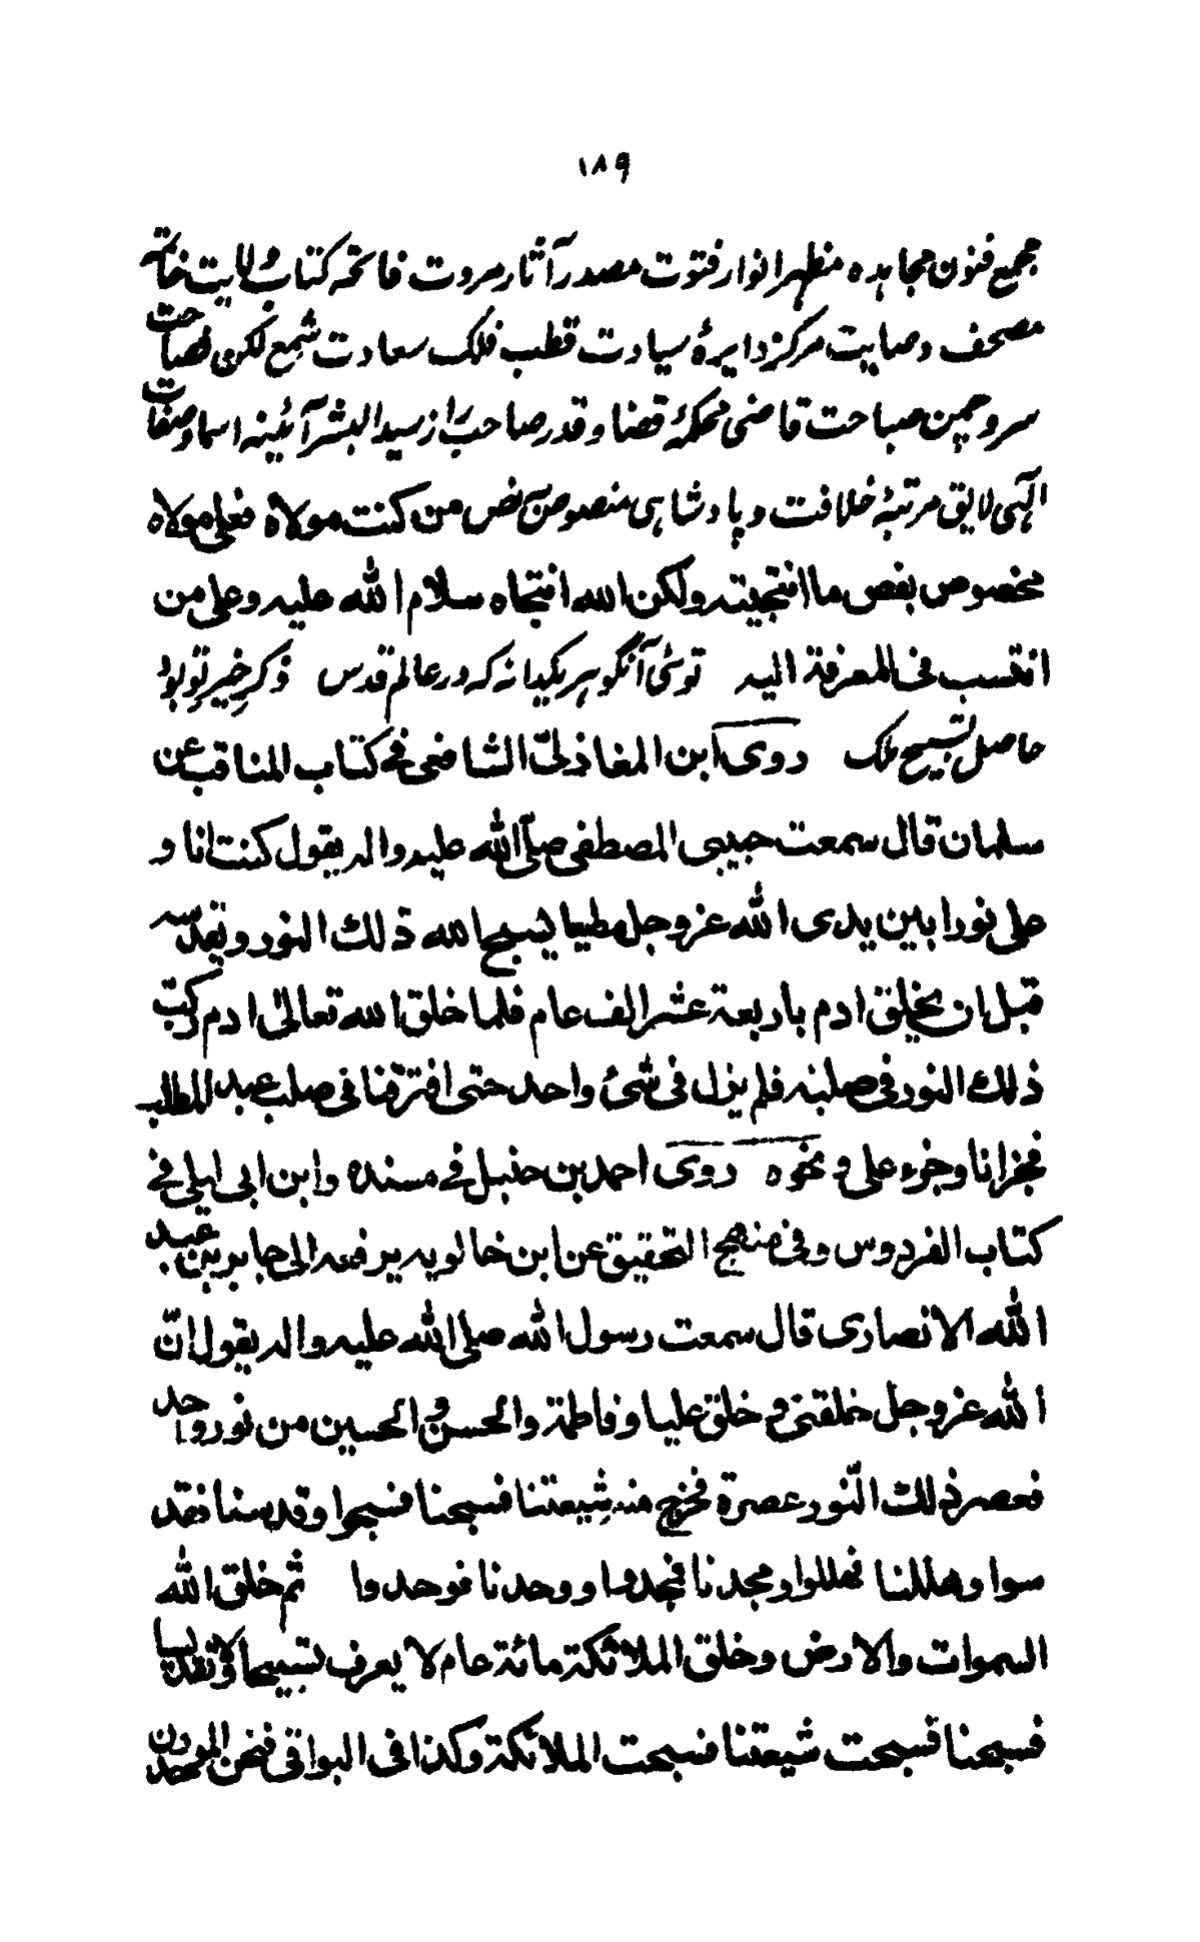 ۱۸۹
مجمع فنون مجاهده مظهر انوار فتوت مصدر آثار مروت فاتحه کتاب ولایت خاتمه
مصحف وصایت مرکز دایرهٔ سیادت قطب فلک سعادت شمع لکن فصاحت
سرو چمن صباحت قاضی محکمهٔ قضا و قدر صاحب راز سید البشر آئینه اسما و صفات
الهی لایق مرتبهٔ خلافت و پادشاهی منصوص نص من کنت مولاه فعلی مولاه
مخصوص بفص ما انتجیته ولکن الله انتجاه سلام الله علیه وعلی من
انتسب فی المعرفة الیه توئی آنگوهر یکدانه که در عالم قدس ذکر خیر تو بود
حاصل تسبیح ملک روی ابن المغاذلیّ الشافعی فی کتاب المناقب عن
سلمان قال سمعت حبیبی المصطفی صلّی الله علیه واله یقول کنت انا و
علی نورا بین یدی الله عز وجل مطیعا یسبح الله ذلك النور ویقدسه
قبل ان یخلق ادم باربعة عشر الف عام فلما خلق الله تعالی ادم رکب
ذلك النور فی صلبه فلم یزل فی شئ واحد حتی افترقنا فی صلب عبد المطلب
فجزء انا وجزء علی و نحوه روی احمد بن حنبل فی مسنده وابن ابی لیلی فی
کتاب الفردوس وفی منهج التحقیق عن ابن خالویه یرفعه الی جابر بن عبد
الله الانصاری قال سمعت رسول الله صلی الله علیه واله یقول انّ
الله عز وجل خلقنی و خلق علیا وفاطمة والحسن و الحسین من نور واحد
فعصر ذلك النّور عصرة فخرج منه شیعتنا فسبحنا فسبحوا وقدسنا فقد
سوا وهللنا فهللوا ومجدنا فمجدوا ووحدنا فوحدوا ثم خلق الله
السموات والارض وخلق الملائکة مائة عام لا یعرف تسبیحا ولا تقدیسا
فسبحنا فسبحت شیعتنا فسبحت الملائکة وکذا فی البواقی فنحن الموحدون